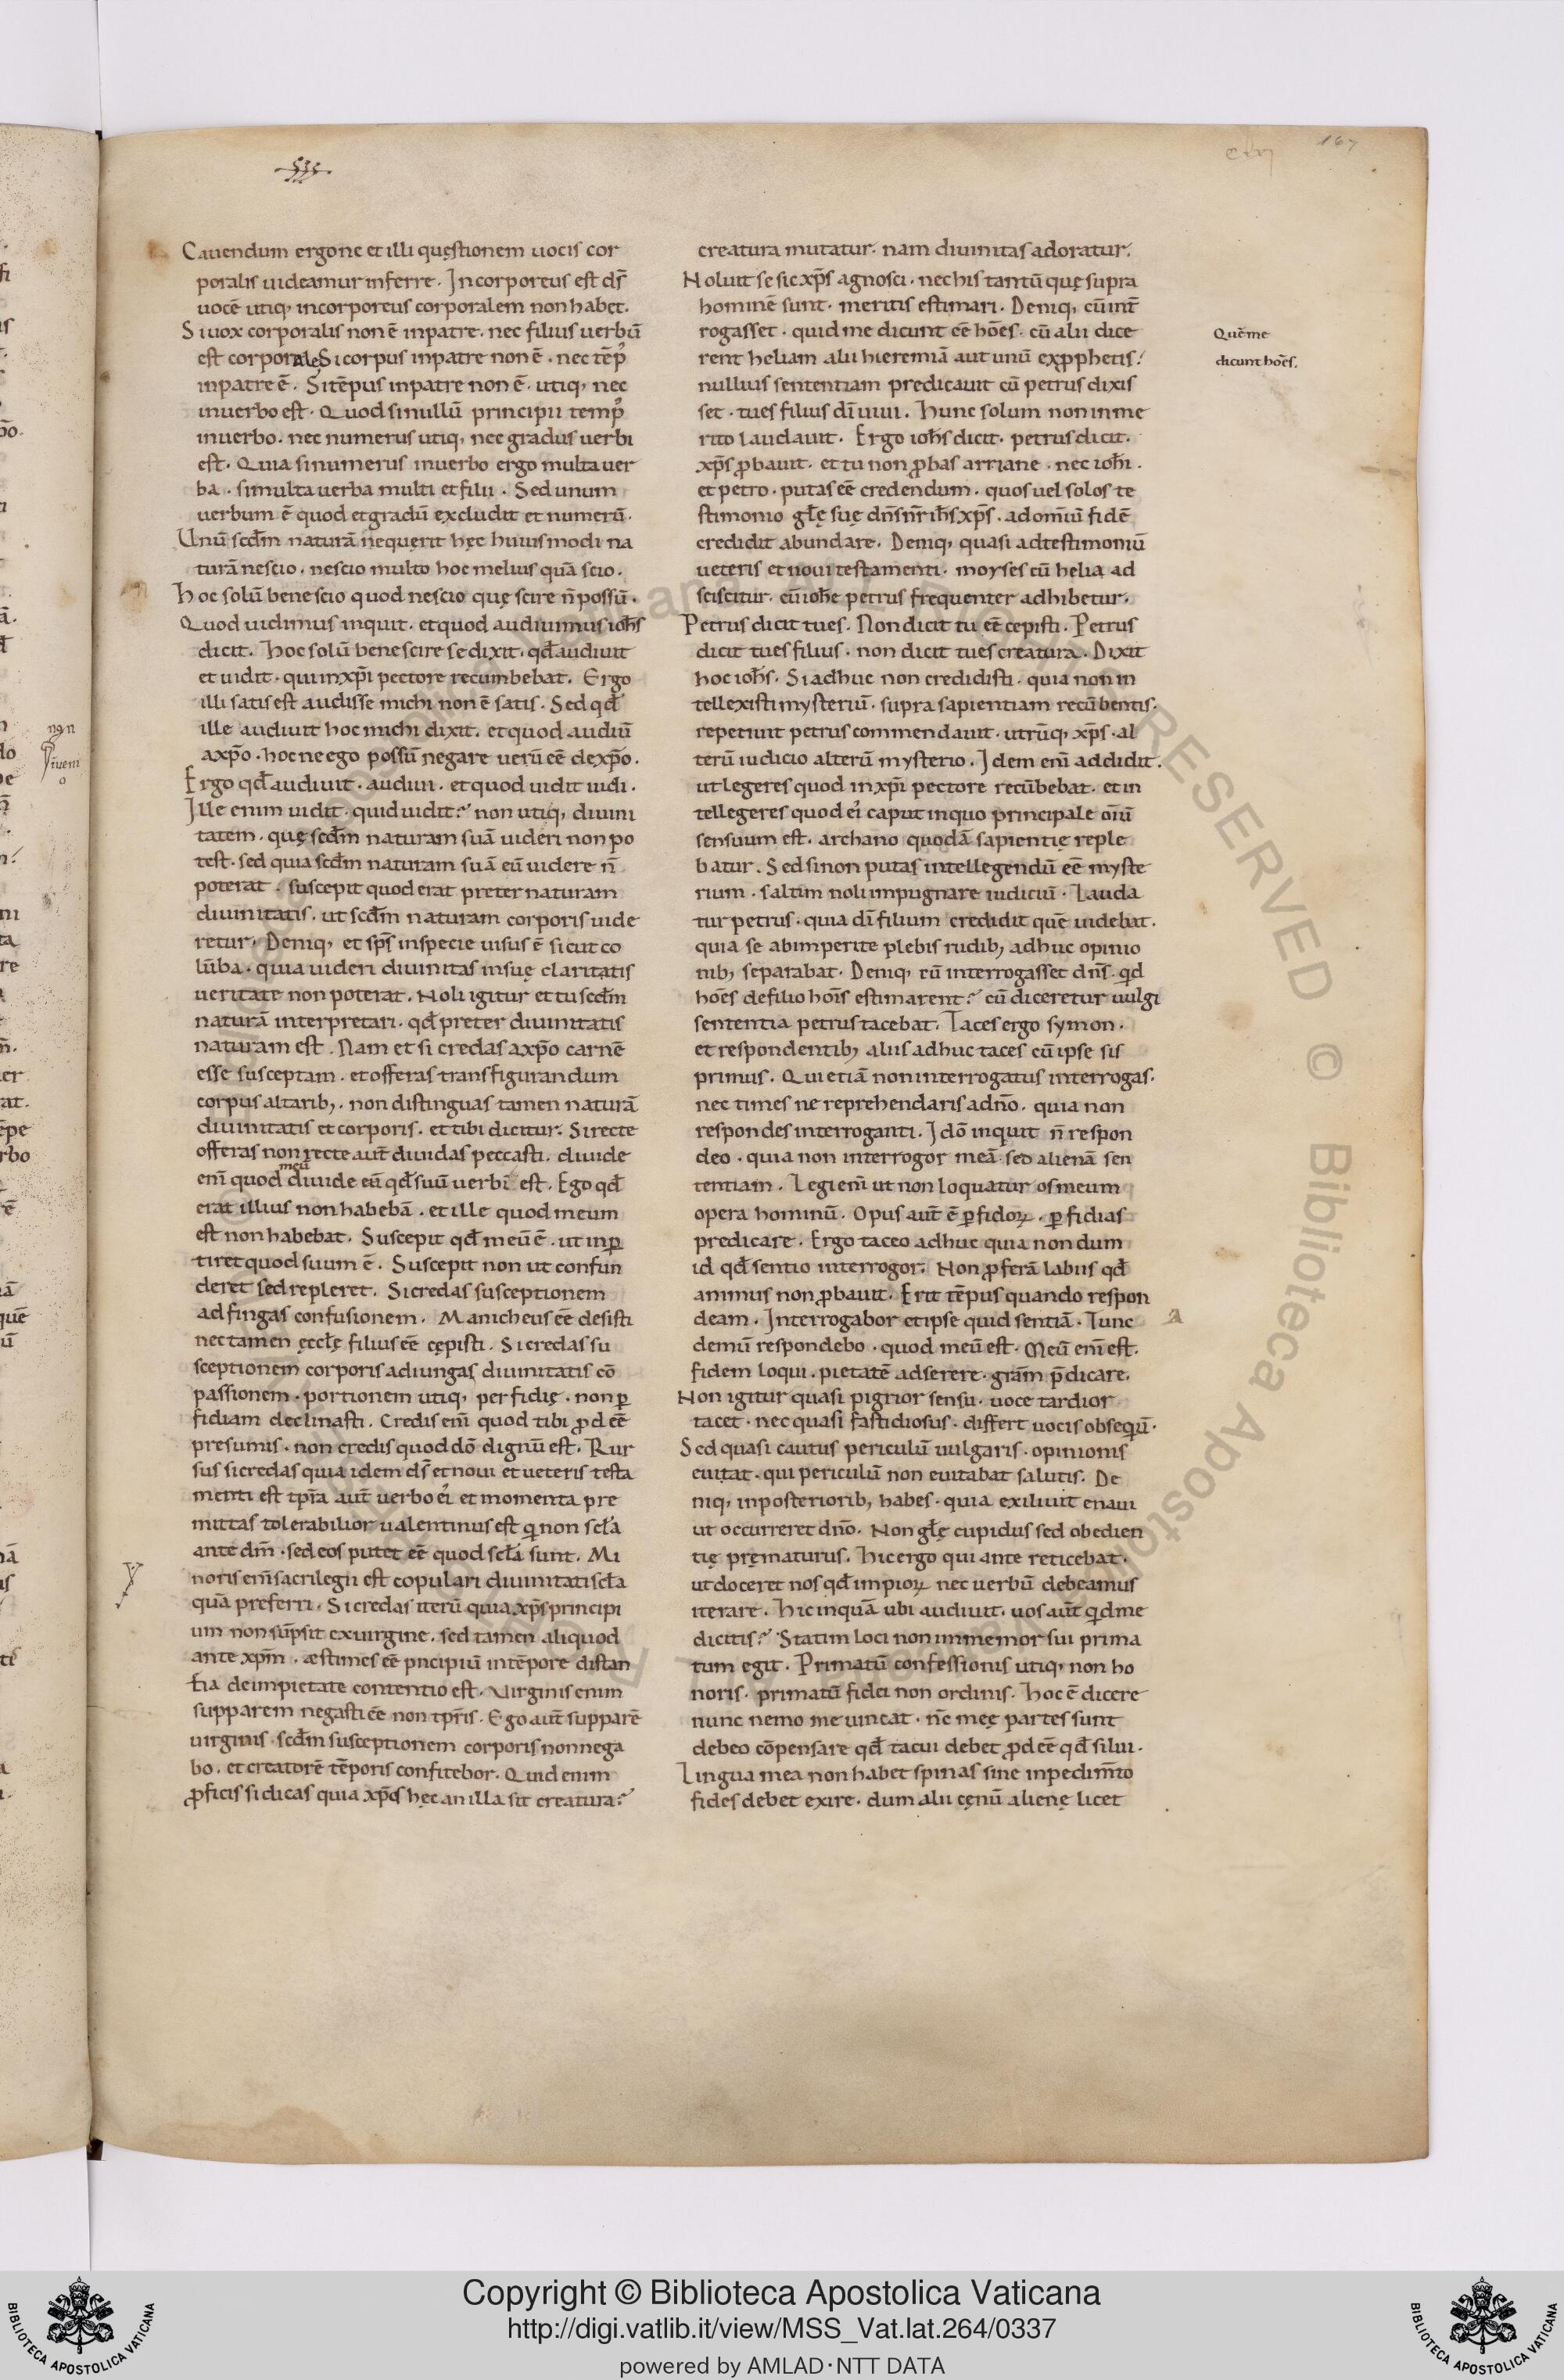 533
167
Cauendum ergo ne et illi quęstionem uocis cor
poralis uideamur inferre. Incorporeus est ds̄
uocē utiq; incorporeus corporalem non habet.
Si uox corporalis non ē in patre. nec filius uerbū
est corporale. Si corpus in patre non ē. nec tēp᷒
in patre ē. Si tēpus in patre non ē. utiq; nec
in uerbo est. Quod si nullū principii temp᷒
in uerbo. nec numerus utiq; nec gradus uerbi
est. Quia si numerus in uerbo ergo multa uer
ba. si multa uerba multi et filii. Sed unum
uerbum ē quod et gradū excludit et numerū.
Unū scdm̄ naturā nequęrit hęc huiusmodi na
turā nescio. nescio multo hoc melius quā scio.
Hoc solū bene scio quod nescio quę scire n̄ possū.
Quod uidimus inquit. et quod audiuimus ioh̄s
dicit. Hoc solū bene scire se dixit. qđ audiuit
et uidit. qui in xp̄i pectore recumbebat. Ergo
illi satis est audisse michi non ē satis. Sed qđ
ille audiuit hoc michi dixit. et quod audiū
a xp̄o. hoc ne ego possū negare uerū eē de xp̄o.
Ergo qđ audiuit. audiui. et quod uidit uidi.
Ille enim uidit. quid uidit? non utiq; diuini
tatem. quę scdm̄ naturam suā uideri non po
test. sed quia scdm̄ naturam suā eū uidere n̄
poterat. suscepit quod erat preter naturam
diuinitatis. ut scdm̄ naturam corporis uide
retur. Deniq; et sp̄s in specie uisus ē sicut co
lūba. quia uideri diuinitas in suę claritatis
ueritate non poterat. Noli igitur et tu scdm̄
naturā interpretari. qđ preter diuinitatis
naturam est. Nam et si credas a xp̄o carnē
esse susceptam. et offeras transfigurandum
corpus altarib;. non distinguas tamen naturā
diuinitatis et corporis. et tibi dicitur. Si recte
offeras non recte aut̄ diuidas peccasti. diuide
meū
enī quod diuide eū qđ suū uerbi est. Ego qđ
erat illius non habebā. et ille quod meum
est non habebat. Suscepit qđ meū ē. ut inꝑ
tiret quod suum ē. Suscepit non ut confun
deret sed repleret. Si credas susceptionem
adfingas confusionem. Manicheus eē desisti
nec tamen ęccłę filius eē cępisti. Si credas su
sceptionem corporis adiungas diuinitatis cō
passionem. portionem utiq; perfidię. non ꝑ
fidiam declinasti. Credis enī quod tibi ꝓdeē
presumis. non credis quod dō dignū est. Rur
sus si credas quia idem ds̄ et noui et ueteris testa
menti est tp̄ra aut̄ uerbo ei᷒ et momenta pre
mittas tolerabilior ualentinus est qi non scła
ante dm̄. sed eos putet eē quod scła sunt. Mi
noris em̄ sacrilegii est copulari diuinitati scła
quā preferri. Si credas iterū quia xp̄s principi
um non sūpsit ex uirgine. sed tamen aliquod
ante xp̄m. æstimes eē pncipiū in tēpore distan
tia de impietate contentio est. Virginis enim
supparem negasti eē non tp̄ris. Ego aut̄ supparē
uirginis. scdm̄ susceptionem corporis non nega
bo. et creatorē tēporis confitebor. Quid enim
ꝓficis si dicas quia xp̄s hęc an illa sit creatura?
creatura mutatur. nam diuinitas adoratur.
Noluit se sic xp̄s agnosci. nec his tantū quę supra
hominē sunt. meritis estimari. Deniq; cū int̄
rogasset. quid me dicunt eē hōes. cū alii dice
rent heliam alii hieremiā aut unū ex ꝓphetis.
nullius sententiam predicauit cū petrus dixis
set. tu es filius dī uiui. Hunc solum non inme
rito laudauit. Ergo ioh̄s dicit. petrus dicit.
xp̄s ꝓbauit. et tu non ꝓbas arriane. nec ioh̄i.
et petro. putas eē credendum. quos uel solos te
stimonio głę suę dn̄s nr̄ ih̄s xp̄s. ad omīū fidē
credidit abundare. Deniq; quasi ad testimoniū
ueteris et noui testamenti. moyses cū helia ad
sciscitur. cū ioh̄e petrus frequenter adhibetur.
Petrus dicit tu es. Non dicit tu eē cepisti. Petrus
dicit tu es filius. non dicit tu es creatura. Dixit
hoc ioh̄s. Si adhuc non credidisti. quia non in
tellexisti mysteriū. supra sapientiam recūbentis.
repetiuit petrus commendauit. utrūq; xp̄s. al
terū iudicio alterū mysterio. Idem enī addidit.
ut legeres quod in xp̄i pectore recūbebat. et in
tellegeres quod ei᷒ caput in quo principale oīū
sensuum est. archano quodā sapientię reple
batur. Sed si non putas intellegendū eē myste
rium. saltim noli impugnare iudiciū. Lauda
tur petrus. quia dī filium credidit quē uidebat.
quia se ab imperite plebis rudib; adhuc opinio
nib; separabat. Deniq; cū interrogasset dn̄s. qd
hōes de filio hoīs estimarent? cū diceretur uulgi
sententia petrus tacebat. Taces ergo symon.
et respondentib; aliis adhuc taces cū ipse sis
primus. Qui etiā non interrogatus interrogas.
nec times ne reprehendaris a dn̄o. quia non
respondes interroganti. Idō inquit n̄ respon
deo. quia non interrogor meā sed alienā sen
tentiam. Legi enī ut non loquatur os meum
opera hominū. Opus aut̄ ē ꝑfidoꝝ. ꝑfidias
predicare. Ergo taceo adhuc quia nondum
id qđ sentio interrogor. Non ꝓferā labiis qđ
animus non ꝓbauit. Erit tēpus quando respon
deam. Interrogabor et ipse quid sentiā. Tunc
demū respondebo. quod meū est. Meū enī est.
fidem loqui. pietatē adserere. grām p̄dicare.
Non igitur quasi pigrior sensu. uoce tardior
tacet. nec quasi fastidiosus. differt uocis obseqū.
Sed quasi cautus periculū uulgaris. opinionis
euitat. qui periculū non euitabat salutis. De
niq; in posteriorib; habes. quia exiliuit e naui
ut occurreret dn̄o. Non głę cupidus sed obedien
tię pręmaturus. Hic ergo qui ante reticebat.
ut doceret nos qđ impioꝝ nec uerbū debeamus
iterare. Hic inquā ubi audiuit. uos aut̄ qd me
dicitis? Statim loci non immemor sui prima
tum egit. Primatū confessionis utiq; non ho
noris. primatū fidei non ordinis. Hoc ē dicere
nunc nemo me uincat. nc̄ meę partes sunt
debeo cōpensare qđ tacui debet ꝓdeē qđ silui.
Lingua mea non habet spinas sine inpedim̄to
fides debet exire. dum alii cęnū alienę licet
Quē me
dicunt hōes.
Copyright © Biblioteca Apostolica Vaticana
http://digi.vatlib.it/view/MSS_Vat.lat.264/0337
powered by AMLAD·NTT DATA
BIBLIOTECA APOSTOLICA VATICANA
BIBLIOTECA APOSTOLICA VATICANA